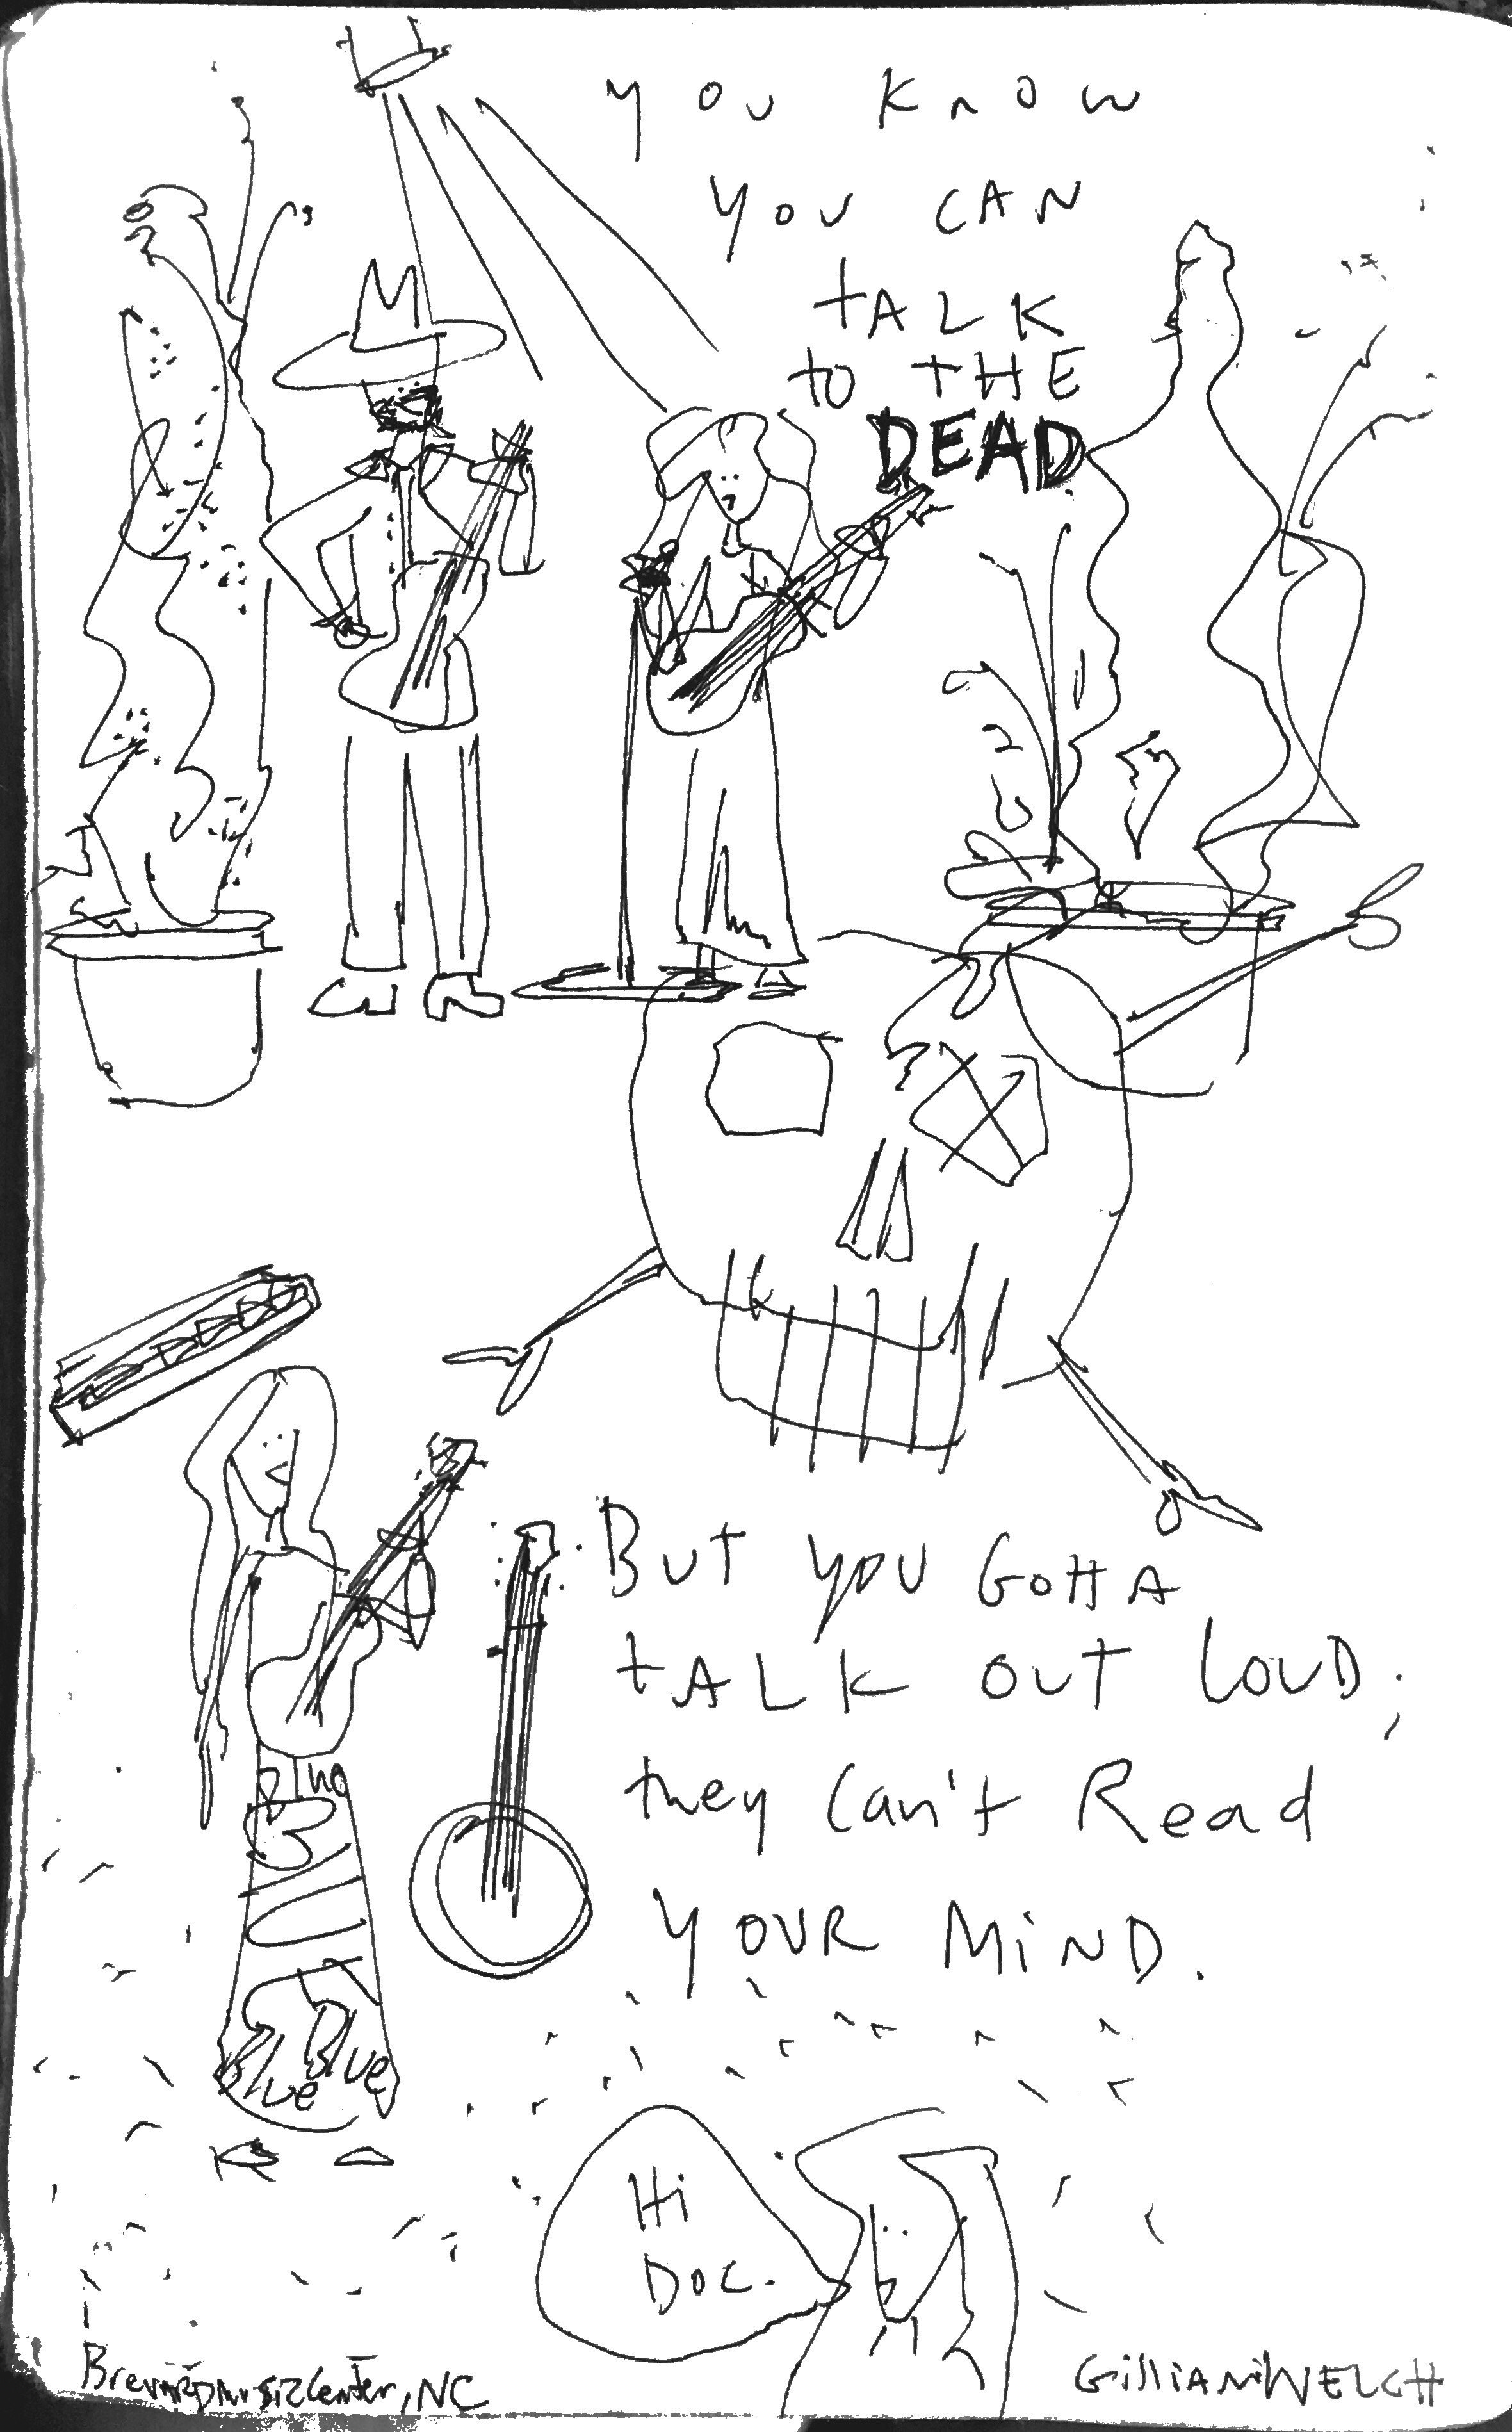 you know
you CAN
tALK
to THE
DEAD
BuT you GottA
tALK OUT LOUD;
they Can't Read
YOUR MiND.
Blue Blue
Hi
Doc.
Brevard Music Center, NC
GilliAN WELCH